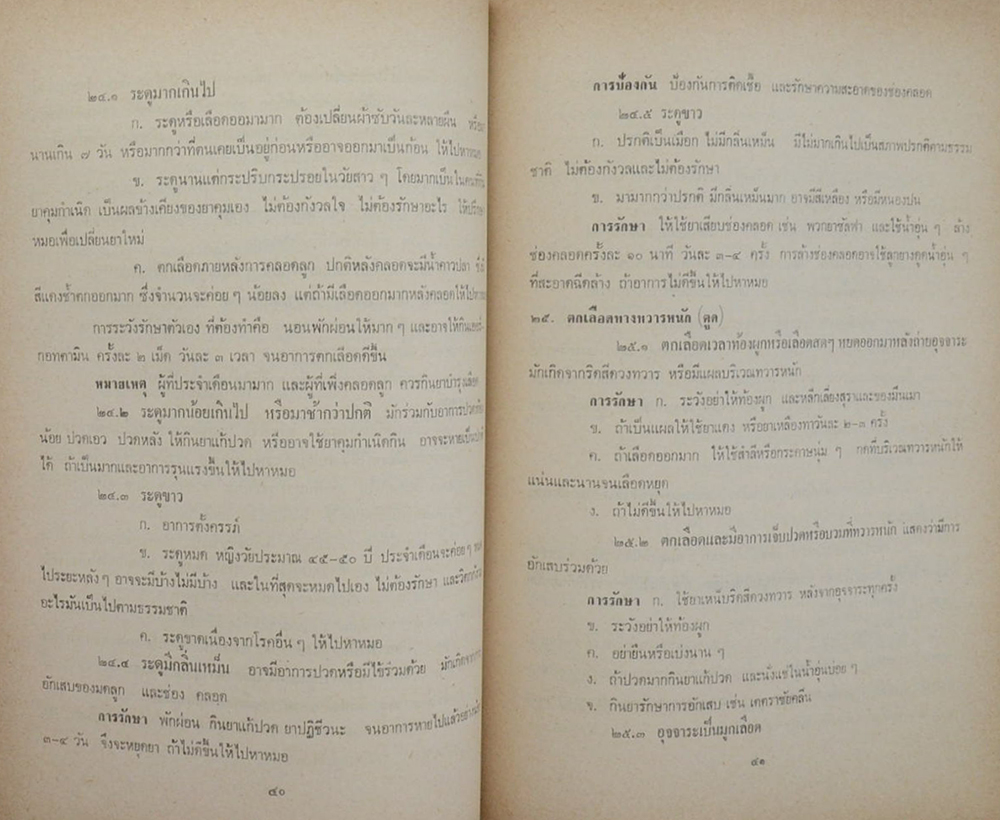 ๒๔.๑ ระดูมากเกินไป
ก. ระดูหรือเลือดออมามาก ต้องเปลี่ยนผ้าซับวันละหลายผืน หรือ
นานเกิน ๗ วัน หรือมากกว่าที่ตนเคยเป็นอยู่ก่อนหรืออาจออกมาเป็นก้อน ให้ไปหาหมอ
ข. ระดูนานแต่กระปริบกระปรอยในวัยสาว ๆ โดยมากเป็นในคนที่กิน
ยาคุมกำเนิด เป็นผลข้างเคียงของยาคุมเอง ไม่ต้องกังวลใจ ไม่ต้องรักษาอะไร ให้ปรึกษา
หมอเพื่อเปลี่ยนยาใหม่
ค. ตกเลือดภายหลังการคลอดลูก ปกติหลังคลอดจะมีน้ำคาวปลา ซึ่งมี
สีแดงช้ำตกออกมาก ซึ่งจำนวนจะค่อย ๆ น้อยลง แต่ถ้ามีเลือดออกมากหลังคลอดให้ไปหาหมอ
การระวังรักษาตัวเอง ที่ต้องทำคือ นอนพักผ่อนให้มาก ๆ และอาจให้กินเออร์-
กอทตามิน ครั้งละ ๒ เม็ด วันละ ๓ เวลา จนอาการตกเลือดดีขึ้น
หมายเหตุ ผู้ที่ประจำเดือนมามาก และผู้ที่เพิ่งคลอดลูก ควรกินยาบำรุงเลือด
๒๔.๒ ระดูมากน้อยเกินไป หรือมาช้ากว่าปกติ มักร่วมกับอาการปวดท้อง
น้อย ปวดเอว ปวดหลัง ให้กินยาแก้ปวด หรืออาจใช้ยาคุมกำเนิดกิน อาจจะหายเป็นปกติ
ได้ ถ้าเป็นมากและอาการรุนแรงขึ้นให้ไปหาหมอ
๒๔.๓ ระดูขาว
ก. อาการตั้งครรภ์
ข. ระดูหมด หญิงวัยประมาณ ๔๕-๕๐ ปี ประจำเดือนจะค่อย ๆ
ไประยะหลัง ๆ อาจจะมีบ้างไม่มีบ้าง และในที่สุดจะหมดไปเอง ไม่ต้องรักษา และวิตกกังวล
อะไรมันเป็นไปตามธรรมชาติ
ค. ระดูขาดเนื่องจากโรคอื่น ๆ ให้ไปหาหมอ
๒๔.๔ ระดูมีกลิ่นเหม็น อาจมีอาการปวดหรือมีไข้ร่วมด้วย มักเกิดจากการ
อักเสบของมดลูก และช่อง คลอด
การรักษา พักผ่อน กินยาแก้ปวด ยาปฏิชีวนะ จนอาการหายไปแล้วอย่างน้อย
๓-๔ วัน จึงจะหยุดยา ถ้าไม่ดีขึ้นให้ไปหาหมอ
๔๐
การป้องกัน ป้องกันการติดเชื้อ และรักษาความสะอาดของช่องคลอด
๒๔.๕ ระดูขาว
ก. ปรกติเป็นเมือก ไม่มีกลิ่นเหม็น มีไม่มากเกินไปเป็นสภาพปรกติตามธรรม
ชาติ ไม่ต้องกังวลและไม่ต้องรักษา
ข. มามากกว่าปรกติ มีกลิ่นเหม็นมาก อาจมีสีเหลือง หรือมีหนองปน
การรักษา ให้ใช้ยาเสียบช่องคลอด เช่น พวกยาซัลฟา และใช้น้ำอุ่น ๆ ล้าง
ช่องคลอดครั้งละ ๑๐ นาที วันละ ๓-๔ ครั้ง การล้างช่องคลอดอาจใช้ลูกยางดูดน้ำอุ่น ๆ
ที่สะอาดฉีดล้าง ถ้าอาการไม่ดีขึ้นให้ไปหาหมอ
๒๕. ตกเลือดทางทวารหนัก (ตูด)
๒๕.๑ ตกเลือดเวลาท้องผูกหรือเลือดสดๆ หยดออกมาหลังถ่ายอุจจาระ
มักเกิดจากริดสีดวงทวาร หรือมีแผลบริเวณทวารหนัก
การรักษา ก. ระวังอย่าให้ท้องผูก และหลีกเลี่ยงสุราและของมึนเมา
ข. ถ้าเป็นแผลให้ใช้ยาแดง หรือยาเหลืองทาวันละ ๒-๓ ครั้ง
ค. ถ้าเลือดออกมาก ให้ใช้สำลีหรือกระดาษนุ่ม ๆ กดที่บริเวณทวารหนักให้
แน่นและนานจนเลือดหยุด
ง. ถ้าไม่ดีขึ้นให้ไปหาหมอ
๒๕.๒ ตกเลือดและมีอาการเจ็บปวดหรือบวมที่ทวารหนัก แสดงว่ามีการ
อักเสบร่วมด้วย
การรักษา ก. ใช้ยาเหน็บริดสีดวงทวาร หลังจากอุจจาระทุกครั้ง
ข. ระวังอย่าให้ท้องผูก
ค. อย่ายืนหรือเบ่งนาน ๆ
ง. ถ้าปวดมากกินยาแก้ปวด และนั่งแช่ในน้ำอุ่นบ่อย ๆ
จ. กินยารักษาการอักเสบ เช่น เตตราซัยคลีน
๒๕.๓ อุจจาระเป็นมูกเลือด
๔๑